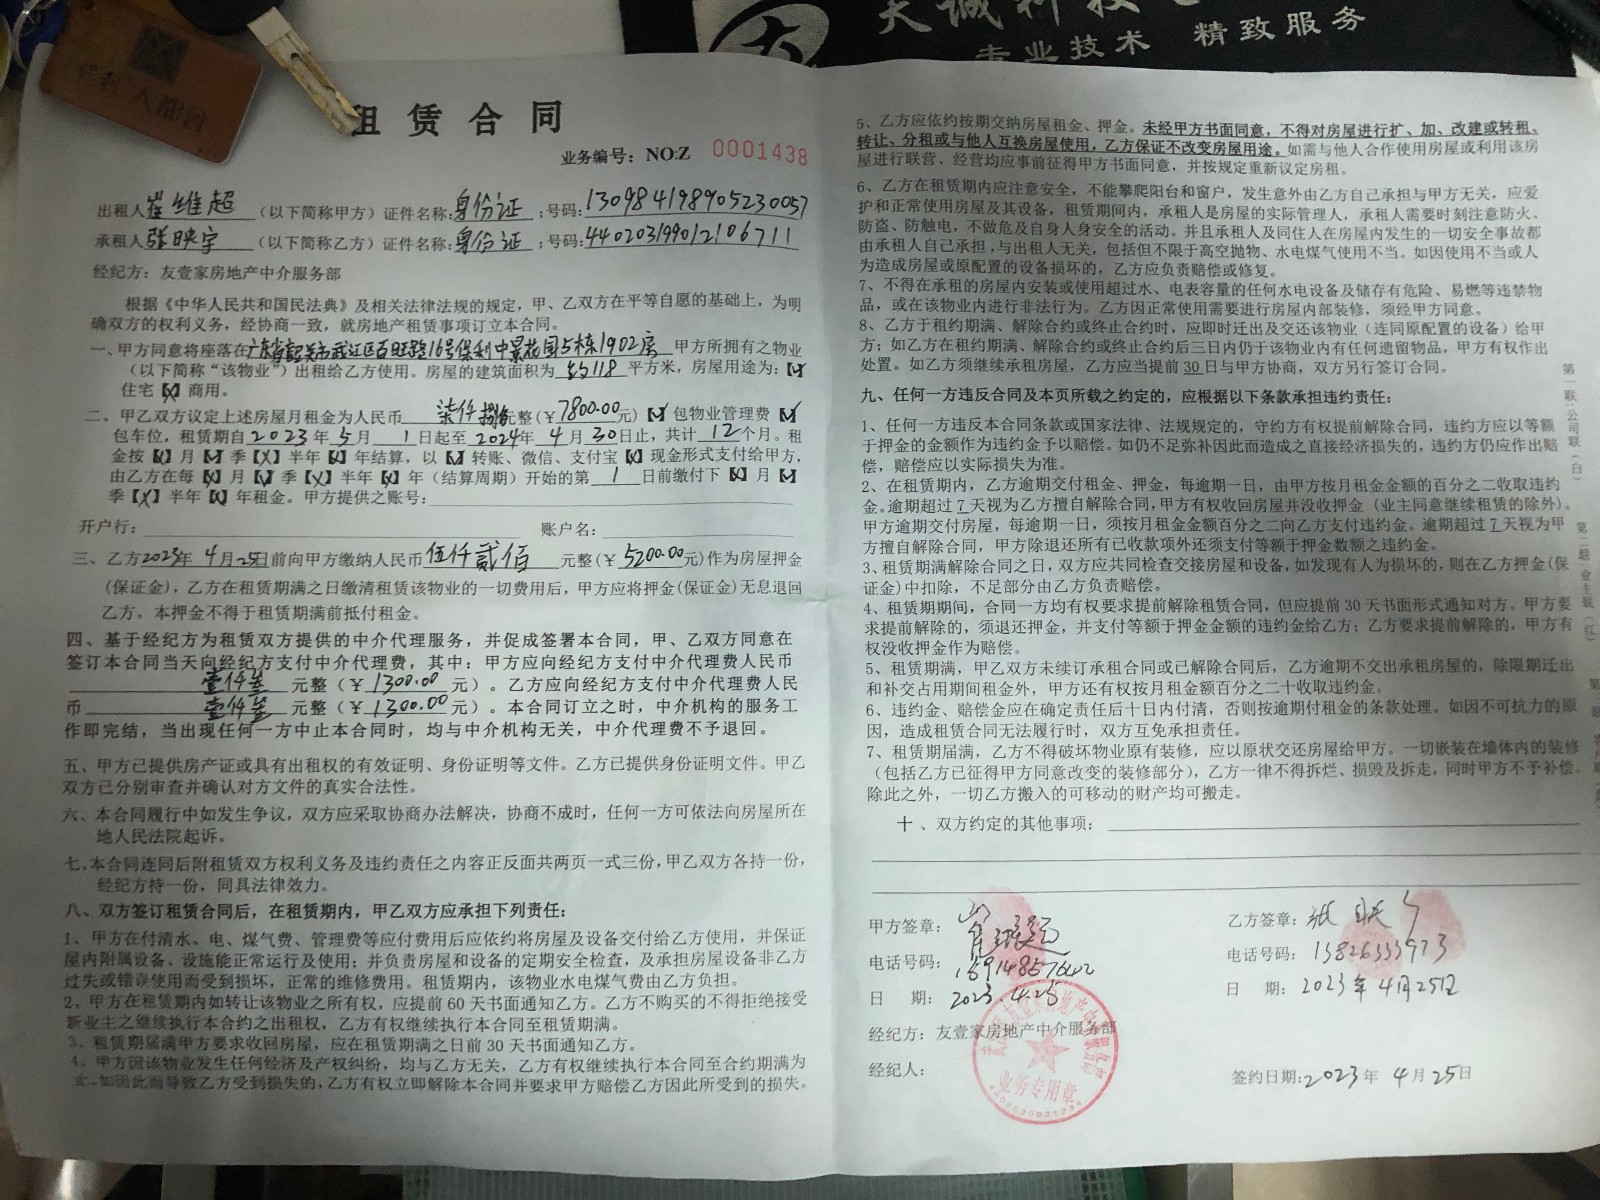 天诚科技
专业技术 精致服务
保利大都會
租赁合同
业务编号：NO:Z 0001438
出租人崔维超（以下简称甲方）证件名称:身份证;号码:130984198905230057
承租人张映宇（以下简称乙方）证件名称:身份证;号码:440203199012106711
经纪方：友壹家房地产中介服务部
根据《中华人民共和国民法典》及相关法律法规的规定，甲、乙双方在平等自愿的基础上，为明
确双方的权利义务，经协商一致，就房地产租赁事项订立本合同。
一、甲方同意将座落在广东省韶关市武江区百旺路16号保利中景花园5栋1902房 甲方所拥有之物业
（以下简称“该物业”）出租给乙方使用。房屋的建筑面积为 约118 平方米，房屋用途为：【✓】
住宅【X】商用。
二、甲乙双方议定上述房屋月租金为人民币 柒仟捌佰元整(￥7800.00元)【✓】包物业管理费【✓】
包车位，租赁期自2023年5月1日起至2024年4月30日止，共计12个月。租
金按【X】月【✓】季【X】半年【X】年结算，以【✓】转账、微信、支付宝【X】现金形式支付给甲方，
由乙方在每【X】月【✓】季【X】半年【X】年（结算周期）开始的第1日前缴付下【X】月【✓】
季【X】半年【X】年租金。甲方提供之账号：
开户行： 账户名：
三、乙方2023年4月25日前向甲方缴纳人民币伍仟贰佰 元整(￥5200.00元)作为房屋押金
(保证金)，乙方在租赁期满之日缴清租赁该物业的一切费用后，甲方应将押金(保证金)无息退回
乙方。本押金不得于租赁期满前抵付租金。
四、基于经纪方为租赁双方提供的中介代理服务，并促成签署本合同，甲、乙双方同意在
签订本合同当天向经纪方支付中介代理费，其中：甲方应向经纪方支付中介代理费人民币
壹仟叁 元整（￥1300.00 元）。乙方应向经纪方支付中介代理费人民
币 壹仟叁 元整（￥1300.00元）。本合同订立之时，中介机构的服务工
作即完结，当出现任何一方中止本合同时，均与中介机构无关，中介代理费不予退回。
五、甲方已提供房产证或具有出租权的有效证明、身份证明等文件。乙方已提供身份证明文件。甲乙
双方已分别审查并确认对方文件的真实合法性。
六、本合同履行中如发生争议，双方应采取协商办法解决，协商不成时，任何一方可依法向房屋所在
地人民法院起诉。
七、本合同连同后附租赁双方权利义务及违约责任之内容正反面共两页一式三份，甲乙双方各持一份，
经纪方持一份，同具法律效力。
八、双方签订租赁合同后，在租赁期内，甲乙双方应承担下列责任：
1、甲方在付清水、电、煤气费、管理费等应付费用后应依约将房屋及设备交付给乙方使用，并保证
屋内附属设备、设施能正常运行及使用；并负责房屋和设备的定期安全检查，及承担房屋设备非乙方
过失或错误使用而受到损坏，正常的维修费用。租赁期内，该物业水电煤气由乙方负担。
2、甲方在租赁期内如转让该物业之所有权，应提前60天书面通知乙方。乙方不购买的不得拒绝接受
新业主之继续执行本合约之出租权，乙方有权继续执行本合同至租赁期满。
3、租赁期届满甲方要求收回房屋，应在租赁期满之日前30天书面通知乙方。
4、甲方因该物业发生任何经济及产权纠纷，均与乙方无关，乙方有权继续执行本合同至合约期满为
止。如因此而导致乙方受到损失的，乙方有权立即解除本合同并要求甲方赔偿乙方因此所受到的损失。
5、乙方应依约按期交纳房屋租金、押金。未经甲方书面同意，不得对房屋进行扩、加、改建或转租、
转让、分租或与他人互换房屋使用，乙方保证不改变房屋用途。如需与他人合作使用房屋或利用该房
屋进行联营、经营均应事前征得甲方书面同意，并按规定重新议定房租。
6、乙方在租赁期内应注意安全，不能攀爬阳台和窗户，发生意外由乙方自己承担与甲方无关，应爱
护和正常使用房屋及其设备，租赁期间内，承租人是房屋的实际管理人，承租人需要时刻注意防火、
防盗、防触电，不做危及自身人身安全的活动。并且承租人及同住人在房屋内发生的一切安全事故都
由承租人自己承担,与出租人无关，包括但不限于高空抛物、水电煤气使用不当。如因使用不当或人
为造成房屋或原配置的设备损坏的，乙方应负责赔偿或修复。
7、不得在承租的房屋内安装或使用超过水、电表容量的任何水电设备及储存有危险、易燃等违禁物
品，或在该物业内进行非法行为。乙方因正常使用需要进行房屋内部装修，须经甲方同意。
8、乙方于租约期满、解除合约或终止合约时，应即时迁出及交还该物业（连同原配置的设备）给甲
方；如乙方在租约期满、解除合约或终止合约后三日内仍于该物业内有任何遗留物品，甲方有权作出
处置。如乙方须继续承租房屋，乙方应当提前30日与甲方协商，双方另行签订合同。
九、任何一方违反合同及本页所载之约定的，应根据以下条款承担违约责任：
1、任何一方违反本合同条款或国家法律、法规规定的，守约方有权提前解除合同，违约方应以等额
于押金的金额作为违约金予以赔偿。如仍不足弥补因此而造成之直接经济损失的，违约方仍应作出赔
偿，赔偿应以实际损失为准。
2、在租赁期内，乙方逾期交付租金、押金，每逾期一日，由甲方按月租金金额的百分之二收取违约
金。逾期超过7天视为乙方擅自解除合同，甲方有权收回房屋并没收押金（业主同意继续租赁的除外）。
甲方逾期交付房屋，每逾期一日，须按月租金金额百分之二向乙方支付违约金。逾期超过7天视为甲
方擅自解除合同，甲方除退还所有已收款项外还须支付等额于押金数额之违约金。
3、租赁期满解除合同之日，双方应共同检查交接房屋和设备，如发现有人为损坏的，则在乙方押金(保
证金)中扣除，不足部分由乙方负责赔偿。
4、租赁期期间，合同一方均有权要求提前解除租赁合同，但应提前30天书面形式通知对方。甲方要
求提前解除的，须退还押金，并支付等额于押金金额的违约金给乙方；乙方要求提前解除的，甲方有
权没收押金作为赔偿。
5、租赁期满，甲乙双方未续订承租合同或已解除合同后，乙方逾期不交出承租房屋的，除限期迁出
和补交占用期间租金外，甲方还有权按月租金额百分之二十收取违约金。
6、违约金、赔偿金应在确定责任后十日内付清，否则按逾期付租金的条款处理。如因不可抗力的原
因，造成租赁合同无法履行时，双方互免承担责任。
7、租赁期届满，乙方不得破坏物业原有装修，应以原状交还房屋给甲方。一切嵌装在墙体内的装修
（包括乙方已征得甲方同意改变的装修部分)，乙方一律不得拆烂、损毁及拆走，同时甲方不予补偿。
除此之外，一切乙方搬入的可移动的财产均可搬走。
十、双方约定的其他事项：
甲方签章： 崔维超
电话号码：
日 期： 2023.4.25
经纪方：友壹家房地产中介服务部
经纪人：
业务专用章
乙方签章：张映宇
电话号码：
日 期： 2023年4月25日
签约日期:2023年4月25日
第一联:公司联(白)
第二联:业主联(红)